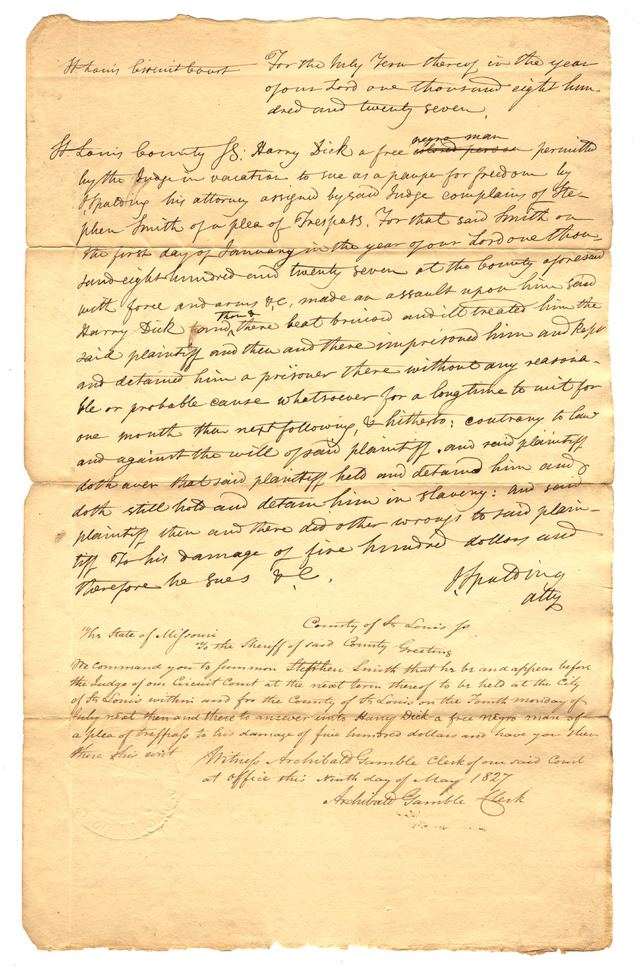 St Louis Circuit Court
For the July Term thereof in the year
of our Lord one thousand eight hun-
dred and twenty seven.
St Louis County Ss: Harry Dick a free negro man colored person permitted
by the Judge in vacation to sue as a pauper for freedom by
J Spalding his attorney assigned by said Judge complains of Ste-
phen Smith of a plea of Trespass. For that said Smith on
the first day of January in the year of our Lord one thou-
sand eight hundred and twenty seven at the County aforesaid
with force and arms &C, made an assault upon him said
Harry Dick and then & there beat bruised and ill treated him the
said plaintiff and then and there imprisoned him and kept
and detained him a prisoner there without any reasona-
ble or probable cause whatsoever for a long time to wit for
one month then next following & hitherto; contrary to law
and against the will of said plaintiff. and said plaintiff
doth aver that said plaintiff held and detained him and
doth still hold and detain him in slavery: and said
plaintiff then and there did other wrongs to said plain-
tiff To his damage of five hundred dollars and
therefore he sues &C.
J Spalding
atty
The State of Missouri
County of St Louis Ss.
To the Sheriff of said County Greeting
We command you to summon Stephen Smith that he be and appear before
the Judge of our Circuit Court at the next term thereof to be held at the City
of St Louis within and for the County of St Louis on the Fourth monday of
July next then and there to answer unto Harry Dick a free negro man of
a plea of trespass to his damage of five hundred dollars and have you then
there this writ
Witness Archibald Gamble Clerk of our said Court
at office this Ninth day of May 1827
Archibald Gamble Clerk